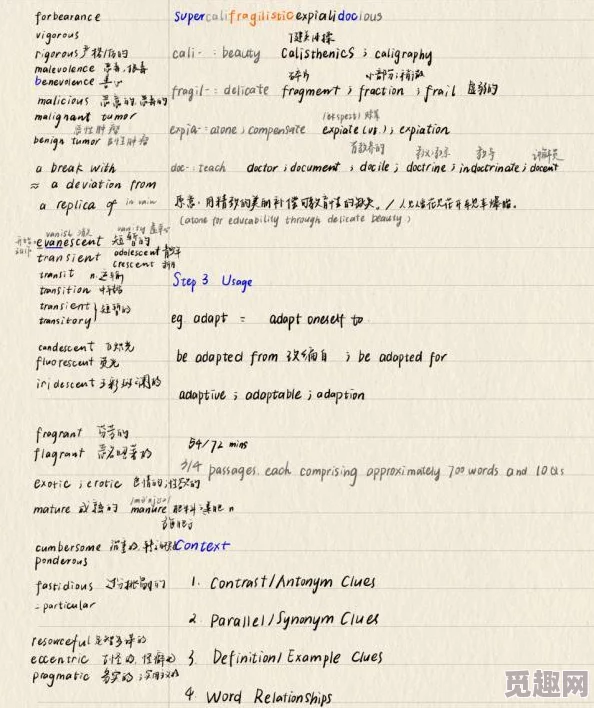 forbearance
vigorous
rigorous 严格的
malevolence 恶毒，狠毒
benevolence 善心
malicious 恶意的，恶毒的
malignant tumor
恶性肿瘤
benign tumor 良性肿瘤
a break with
≈ a deviation from
a replica of in vain
vanish 消失 vanity 虚荣心
evanescent 短暂的
transient adolescent 青少年
crescent
transit n. 运输
transition 中转
transient } 短暂的
transitory
candescent 白炽光
fluorescent 荧光
iridescent 彩虹
fragrant 芳香的
flagrant 恶名昭著的
exotic ; erotic 色情的
mature 成熟的 manure 肥料 施肥 n
施肥 v
cumbersome 沉重的
ponderous
fastidious 过分挑剔的
- particular
resourceful 足智多谋的
eccentric 古怪的，怪癖的
pragmatic 务实的；实用主义的
Supercalifragilisticexpialidocious
健美体操
cali- : beauty calisthenics ; caligraphy
碎片 小部分；稍微
fragil- : delicate fragment ; fraction ; frail 虚弱的
expia- : atone ; compensate expiate (vt.) ; expiation
doc- : teach doctor ; document ; docile ; doctrine ; indoctrinate ; docent
(atone for educability through delicate beauty)
Step 3 Usage
eg adapt = adapt oneself to
be adapted from 改编自 ; be adapted for
adaptive ; adaptable ; adaption
54/72 mins
3/4 passages, each comprising approximately 700 words and 10 Qs
Context
1. Contrast/Antonym Clues
2. Parallel/Synonym Clues
3. Definition/Example Clues
4. Word Relationships
觅趣网